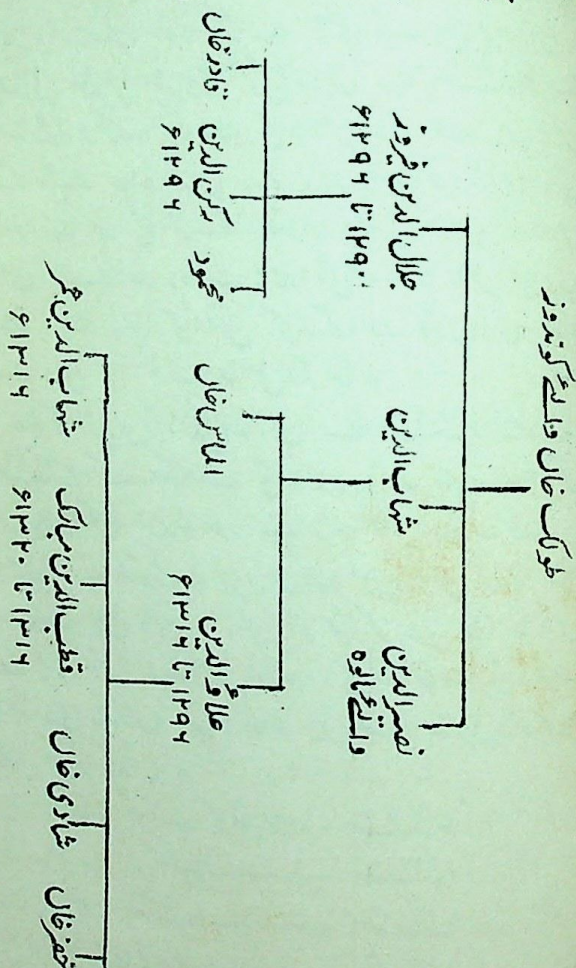 طولک خاں والئے گوندوند
جلال الدین فیروز
۱۲۹۰ تا ۱۲۹۶ء
شہاب الدین
نصیر الدین
والئے مالوہ
قادر خاں
رکن الدین
۱۲۹۶ء
محمود
الماس خاں
علاؤ الدین
۱۲۹۶ تا ۱۳۱۶ء
شہاب الدین عمر
۱۳۱۶ء
قطب الدین مبارک
۱۳۱۶ تا ۱۳۲۰ء
شادی خاں
خضر خاں